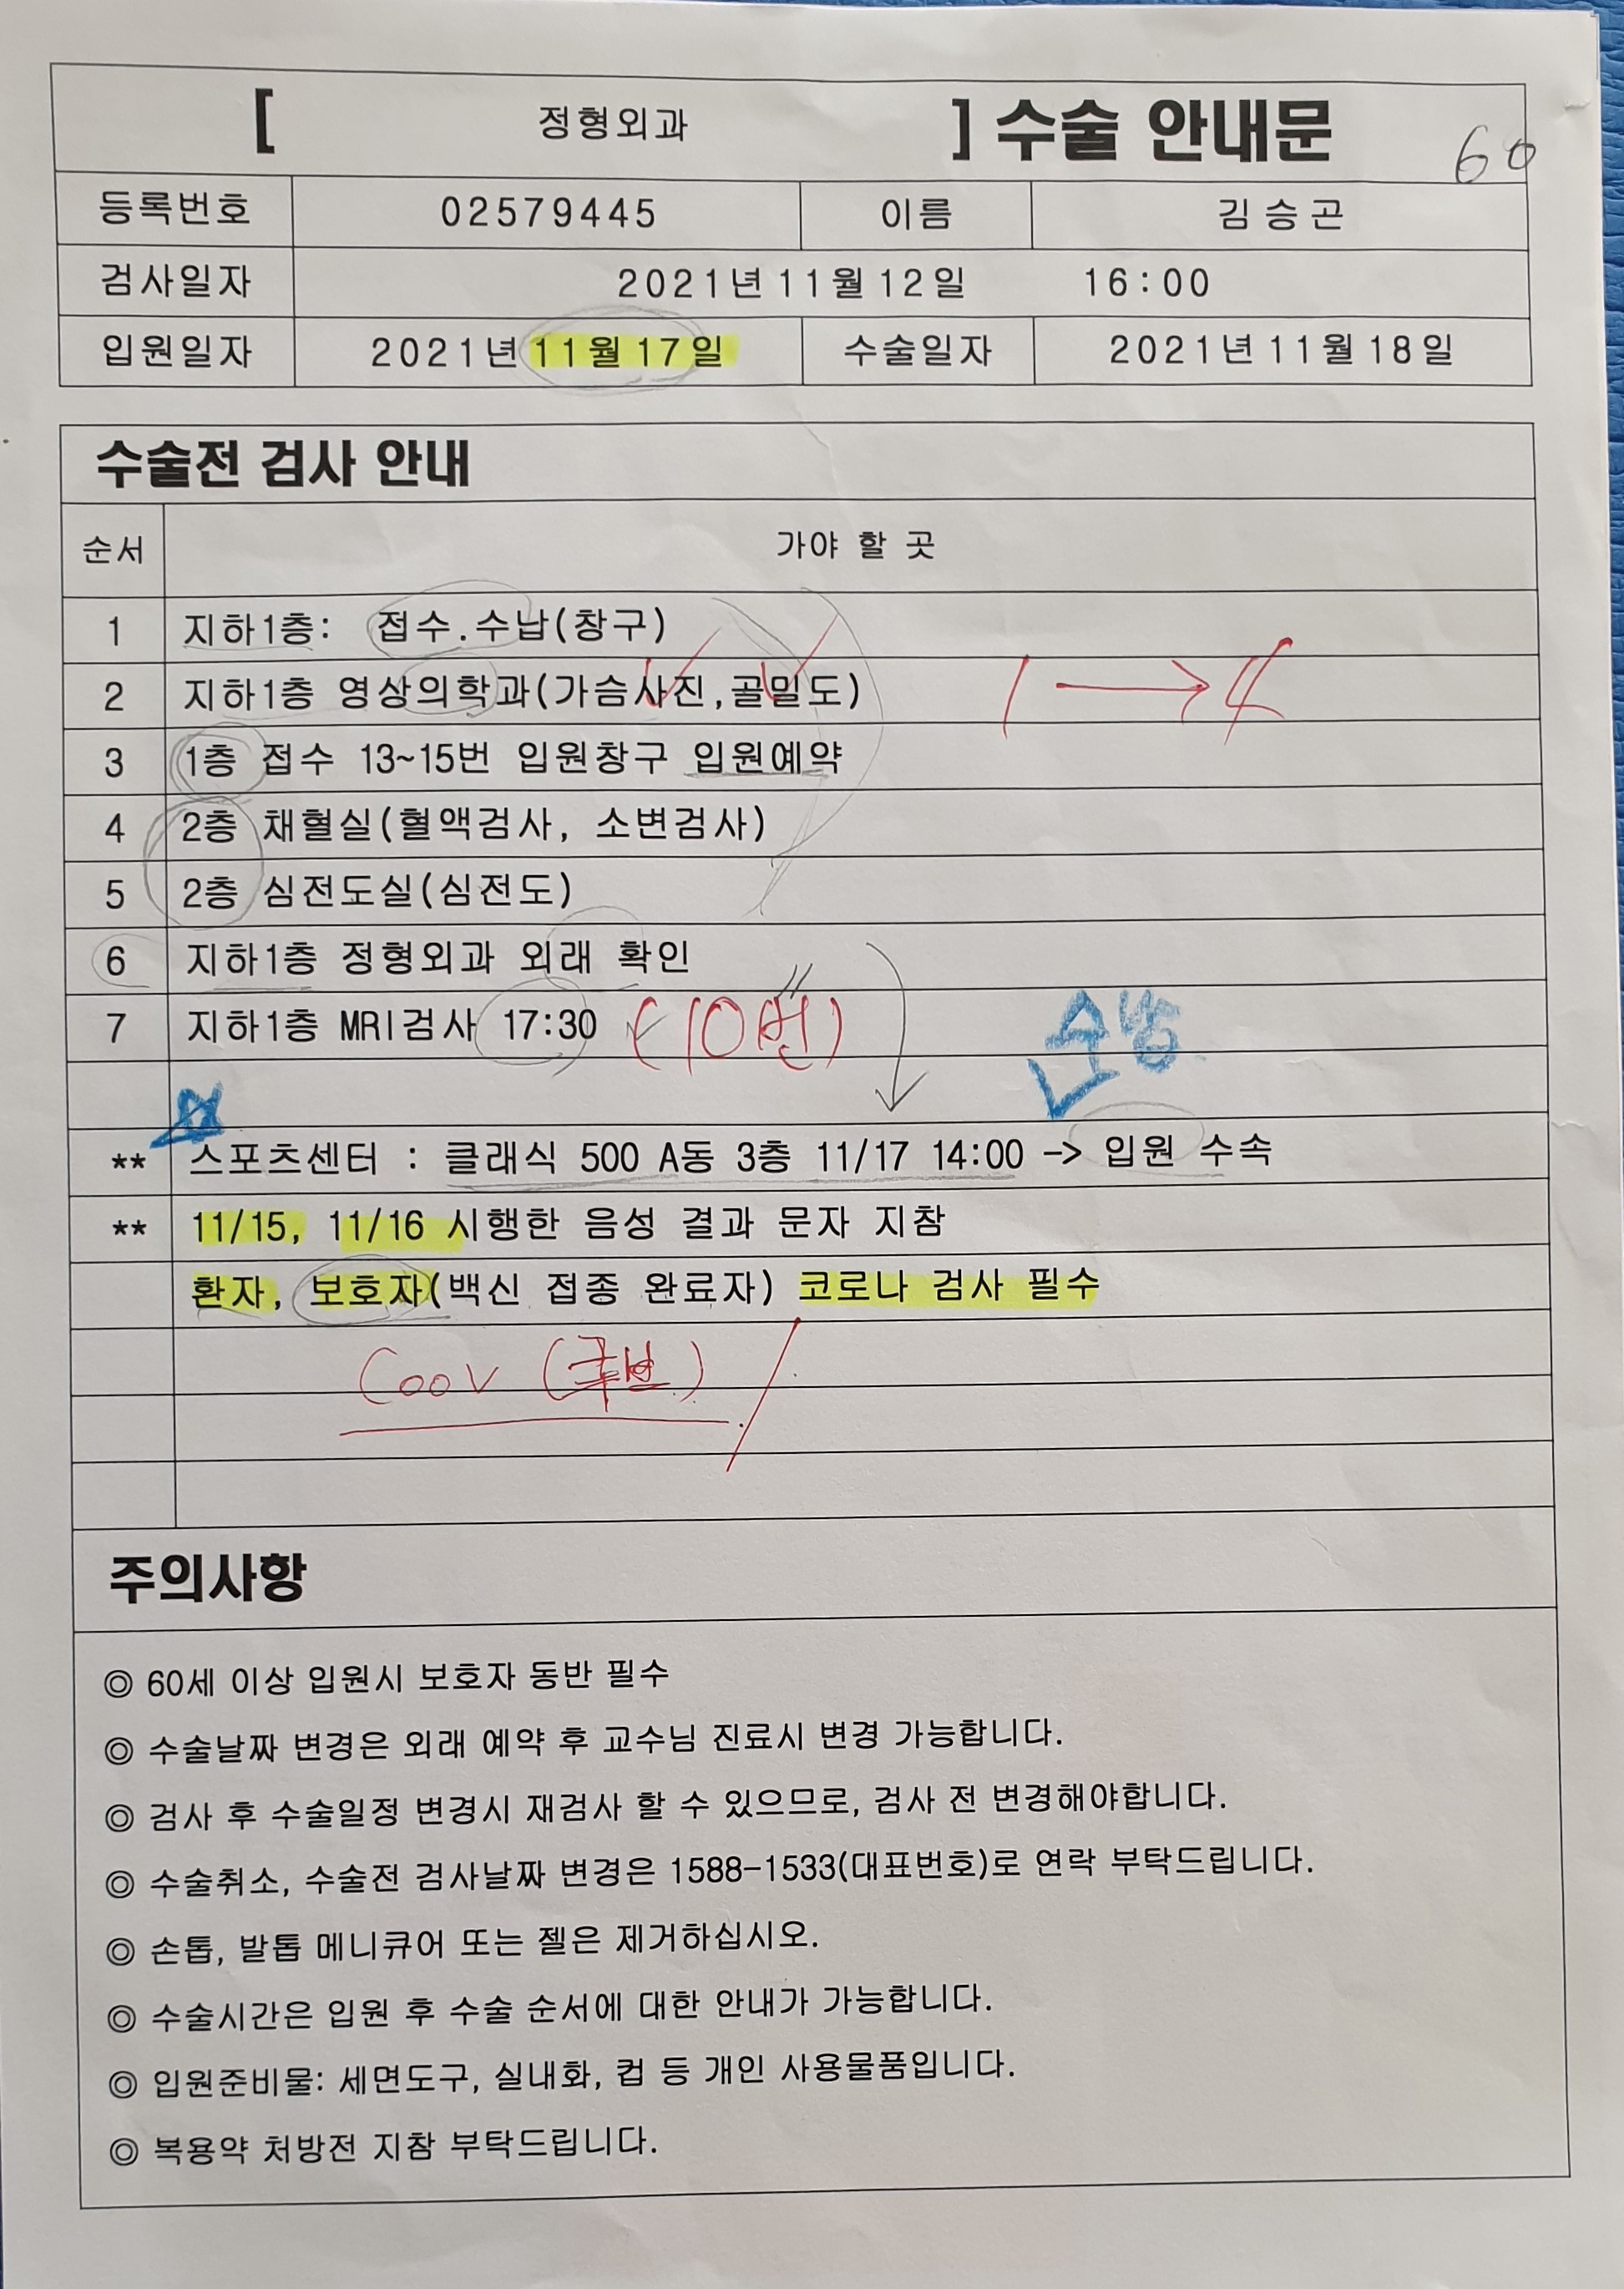 [ 정형외과 ] 수술 안내문
60
등록번호 02579445 이름 김승곤
검사일자 2021년 11월 12일 16:00
입원일자 2021년 11월 17일 수술일자 2021년 11월 18일
수술전 검사 안내
순서 가야 할 곳
1 지하1층: 접수.수납(창구)
2 지하1층 영상의학과(가슴사진,골밀도)
1 →
3 1층 접수 13~15번 입원창구 입원예약
4 2층 채혈실(혈액검사, 소변검사)
5 2층 심전도실(심전도)
6 지하1층 정형외과 외래 확인
7 지하1층 MRI검사 17:30 (10번)
수납
** 스포츠센터 : 클래식 500 A동 3층 11/17 14:00 -> 입원 수속
** 11/15, 11/16 시행한 음성 결과 문자 지참
환자, 보호자(백신 접종 완료자) 코로나 검사 필수
COOV
주의사항
◎ 60세 이상 입원시 보호자 동반 필수
◎ 수술날짜 변경은 외래 예약 후 교수님 진료시 변경 가능합니다.
◎ 검사 후 수술일정 변경시 재검사 할 수 있으므로, 검사 전 변경해야합니다.
◎ 수술취소, 수술전 검사날짜 변경은 1588-1533(대표번호)로 연락 부탁드립니다.
◎ 손톱, 발톱 메니큐어 또는 젤은 제거하십시오.
◎ 수술시간은 입원 후 수술 순서에 대한 안내가 가능합니다.
◎ 입원준비물: 세면도구, 실내화, 컵 등 개인 사용물품입니다.
◎ 복용약 처방전 지참 부탁드립니다.